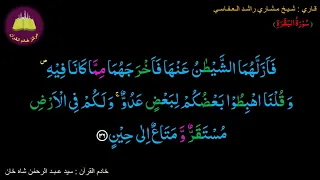 قاري : شيخ مشاري راشد العفاسي
﴿سُوْرَةُ الْبَقَرَة﴾
فَاَزَلَّهُمَا الشَّيْطٰنُ عَنْهَا فَاَخْرَجَهُمَا مِمَّا كَانَا فِيْهِ ۪
وَ قُلْنَا اهْبِطُوْا بَعْضُكُمْ لِبَعْضٍ عَدُوٌّ ۚ وَ لَكُمْ فِي الْاَرْضِ
مُسْتَقَرٌّ وَّ مَتَاعٌ اِلٰى حِيْنٍ ﴿۳۶﴾
خادم القرآن : سيد عبد الرحمٰن شاه خان